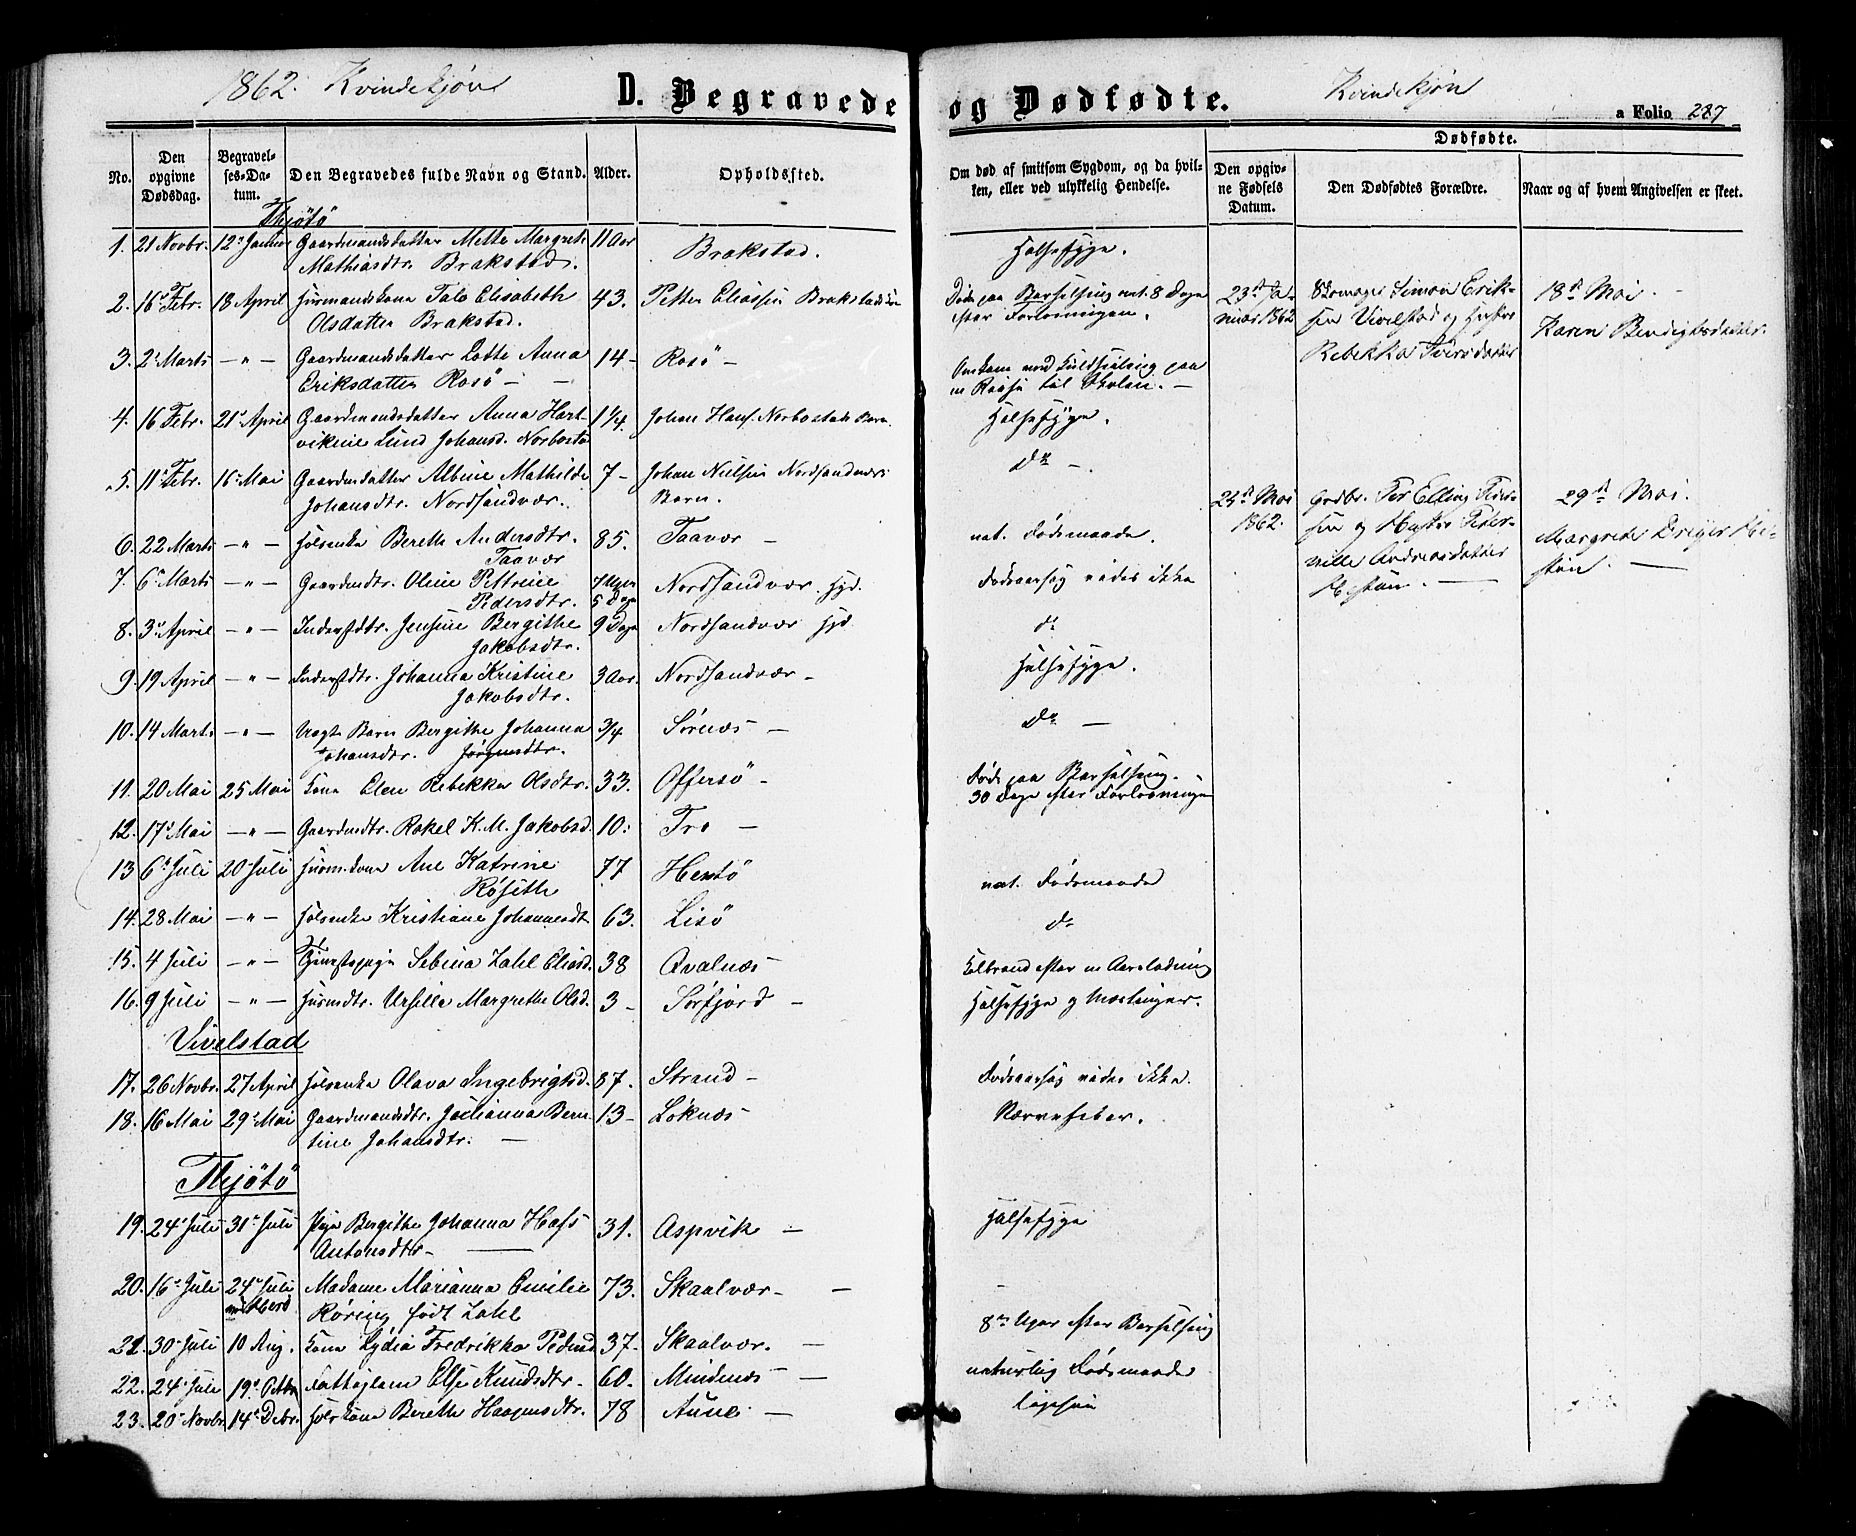 1862. Kvindekjøn
D. Begravede og Dødfødte.
Kvindekjøn
a Folio 287
No.
Den opgivne Dødsdag.
Begravelses-Datum.
Den Begravedes fulde Navn og Stand.
Alder.
Opholdssted.
Om død af smitsom Sygdom, og da hvilken, eller ved ulykkelig Hendelse.
Dødfødte.
Den opgivne Fødsels Datum.
Den Dødfødtes Forældre.
Naar og af hvem Angivelsen er skeet.
Thjøtö
1. 21 Novbr. 12 Januar Gaardmandsdatter Mette Margrete 11 Aar Brakstad. Halssyge.
Mathiasdtr. Brakstad.
2. 16 Febr. 18 April Huusmandskone Talo Elisabeth 43. Petter Eliassen Brakstad Døde paa Barselseng omt. 8 Dage
Olsdatter Brakstad. efter Forløsningen.
23de Januar 1862
Skomager Simon Eriksen Vivelstad og Hustru
Rebekka Iversdatter
18de Mai
Karen Bendigtsdatter
3. 2 Marts — " — Gaardmandsdatter Lotte Anna 14 - Rosö -
Eriksdatter Rosö — Omkom ved paa
en Reise til Skolen. —
4. 16 Febr. 21 April Gaardmandsdatter Anna Hart- 1 1/4. Johan Hans. Norbostads Barn. Halssyge.
vikine Lund Johansd. Norbostad
5. 11 Febr. 16 Mai Gaardmdatter Albine Mathilde 7 - Johan Nielsen Nordsandvær Do —.
Johansdtr. Nordsandvær. Barn.
25de Mai 1862.
Gaardbr. Per Elling Peder-
sen og Hustru Peter-
nille Andreasdatter
29de Mai.
Margrete
6. 22 Marts — " — Berette Andersdtr. 85. Taavær — nat. Dødsmaade.
Taavær
7. 6 Marts — " — Gaardmdtr. Oline Petrine 7 Uger Nordsandvær. Dødsaarsag vides ikke
Pedersdtr. 5 Dage
8. 3 April — " — Inderstdtr. Jensine Bergithe 9 Dage Nordsandvær do
Jakobsdtr.
9. 19 April — " — Inderstdtr. Johanna Kristine 3 Aar. Nordsandvær — Halssyge.
Jakobsdtr.
10. 14 Marts — " — Barn Bergithe Johanna 3/4 Sørnæs — Do —
Johansdtr.
11. 20 Mai 25 Mai Kone Elen Rebekka Olsdtr. 33. Offersö - Døde paa Barselseng.
30 Dage efter Forløsningen
12. 17 Mai — " — Gaardmdtr. Rakel K. M. Jakobsd. 10: Tro —
13 6 Juli 20 Juli Huusm.kone Ane Katrine 77 Hestö nat. Dødsmaade
Røseth
14. 28 Mai — " — Kristiane Johannesdt. 63. Lisö do
15. 4 Juli — " — Tjenestepige Sebina Zahl Eliasd. 38 Qvalnæs — Kolbrand efter en Aareladning
16. 9 Juli — " — Huusmdtr. Ursilla Margrethe Olsd. 3 - Sørfjord — Halssyge og Mæslinger.
Vivelstad
17. 26 Novbr. 27 April Olava Ingebrigtsd. 87. Strand - Dødsaarsag vides ikke.
18. 16 Mai 29 Mai Gaardmandsdtr. Julianna Bern- 13 - Løknæs Nervefeber.
tine Johansdtr. —
Thjötö
19. 24 Juli 31 Juli Pige Bergithe Johanna Hass 31. Aspvik — Halssyge
Antonsdtr —
20. 16 Juli 24 Juli Madame Marianna Emilie 73. Skaalvær — —
Røring født Zahl
21. 30 Juli 10 Aug. Kone Lydia Fredrikka Pedersd 37. Skaalvær. — 8 Uger efter Barselseng
22. 24 Juli 19 Fattiglem Else Knudsdtr. 60. Mindnæs — naturlig Dødsmaade
23. 20 Novbr 14 Debr. Berette Haagensdtr. 78 Aune — ligesaa